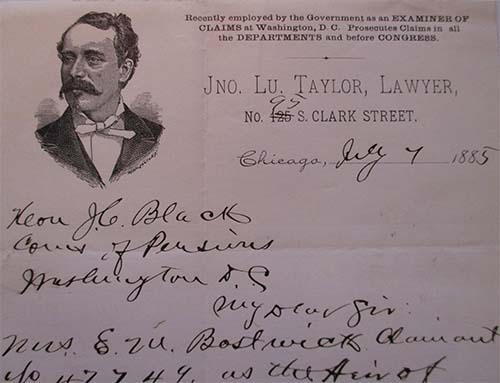 Recently employed by the Government as an EXAMINER OF
CLAIMS at Washington, D. C. Prosecutes Claims in all
the DEPARTMENTS and before CONGRESS.
JNO. LU. TAYLOR, LAWYER,
95
No. 125 S. CLARK STREET.
Chicago, July 7 1885
Hon J. C. Black
Coms of Pensions
Washington D. C
My dear Sir:
Mrs. E. M. Bostwick Claimant
as the Heir of